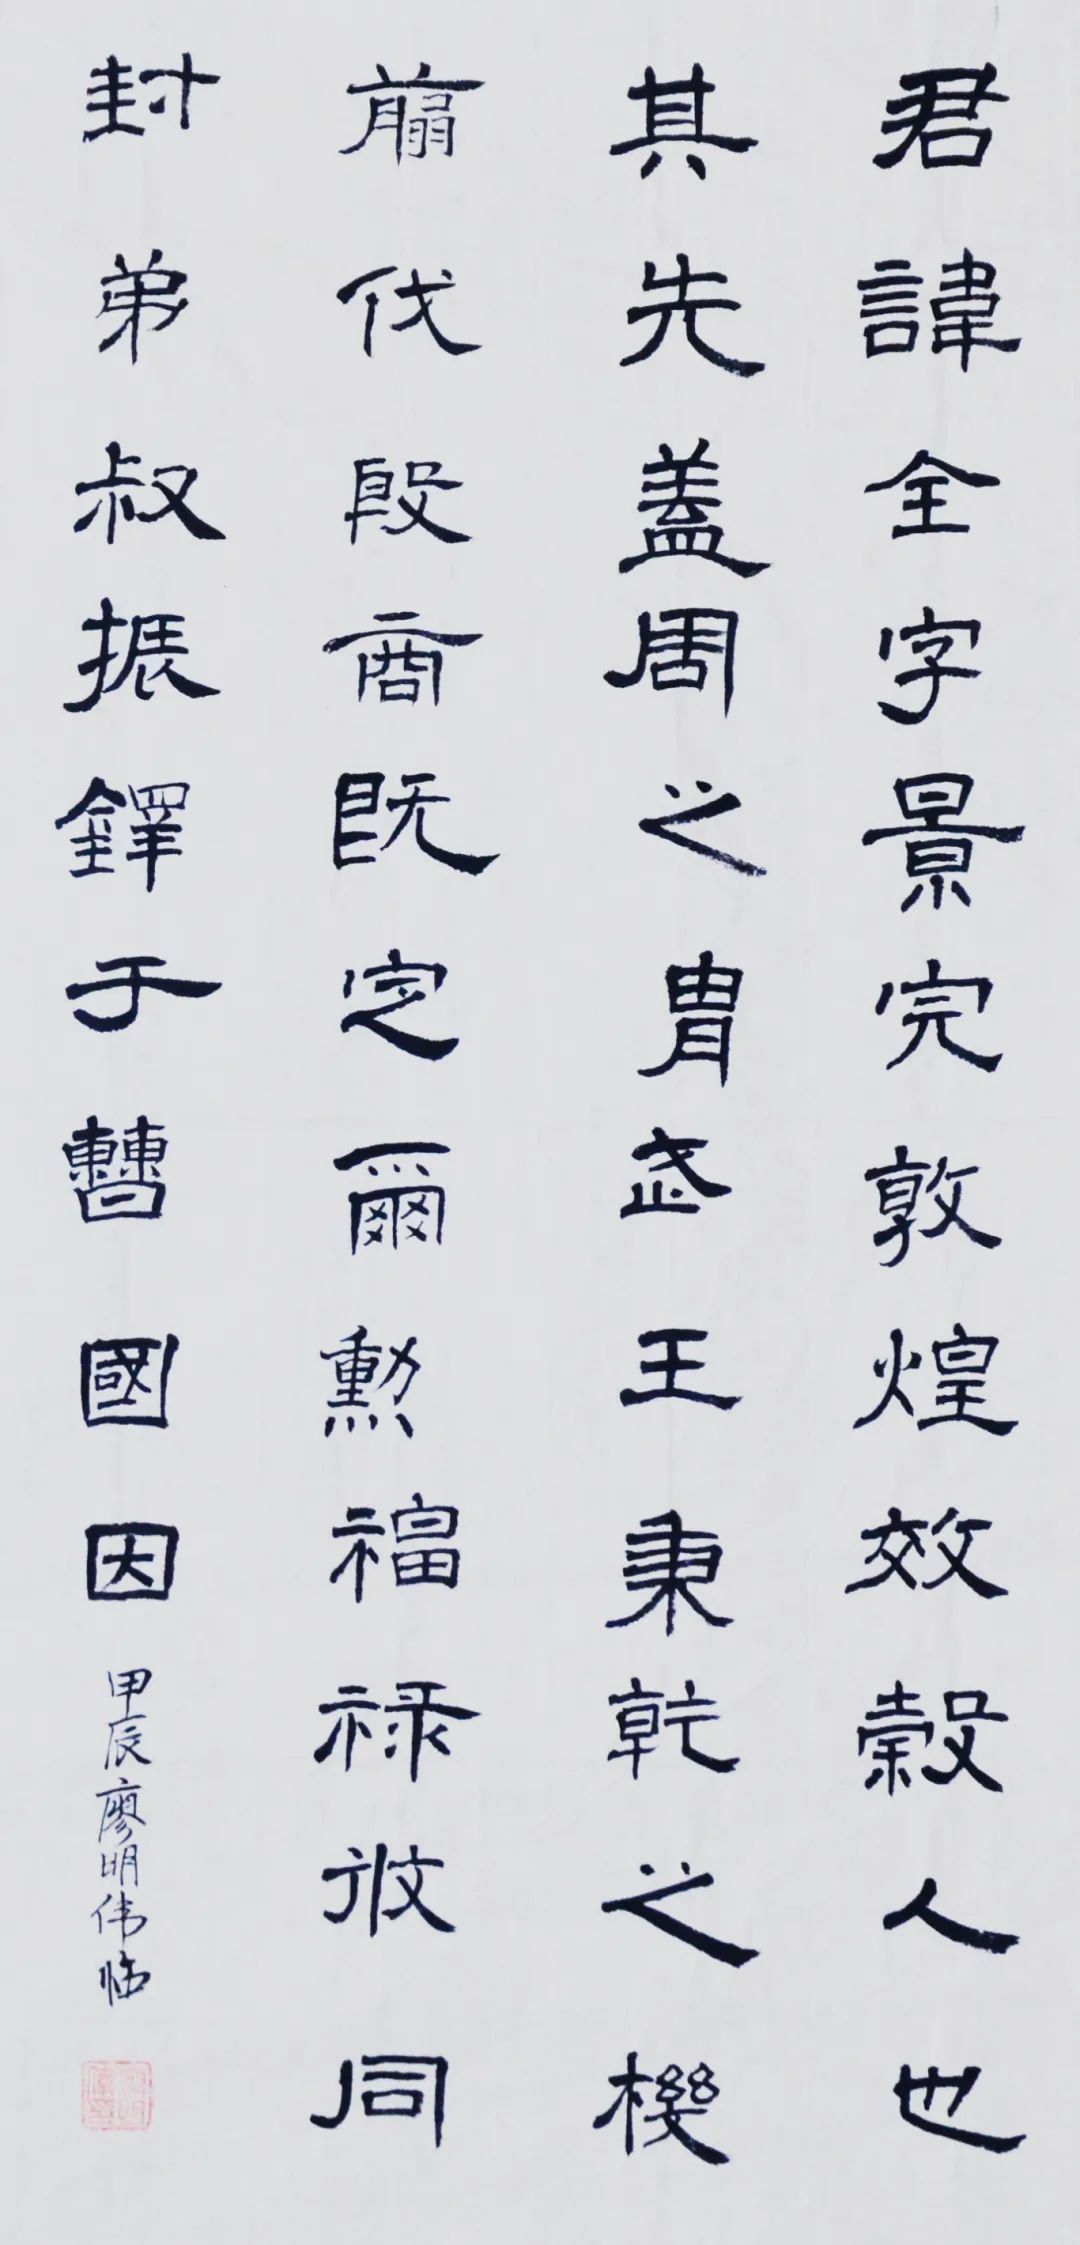 君諱全字景完敦煌效穀人也
其先蓋周之胄武王秉乾之機
翦伐殷商既定爾勳福祿攸同
封弟叔振鐸于曹國因
甲辰廖明伟临